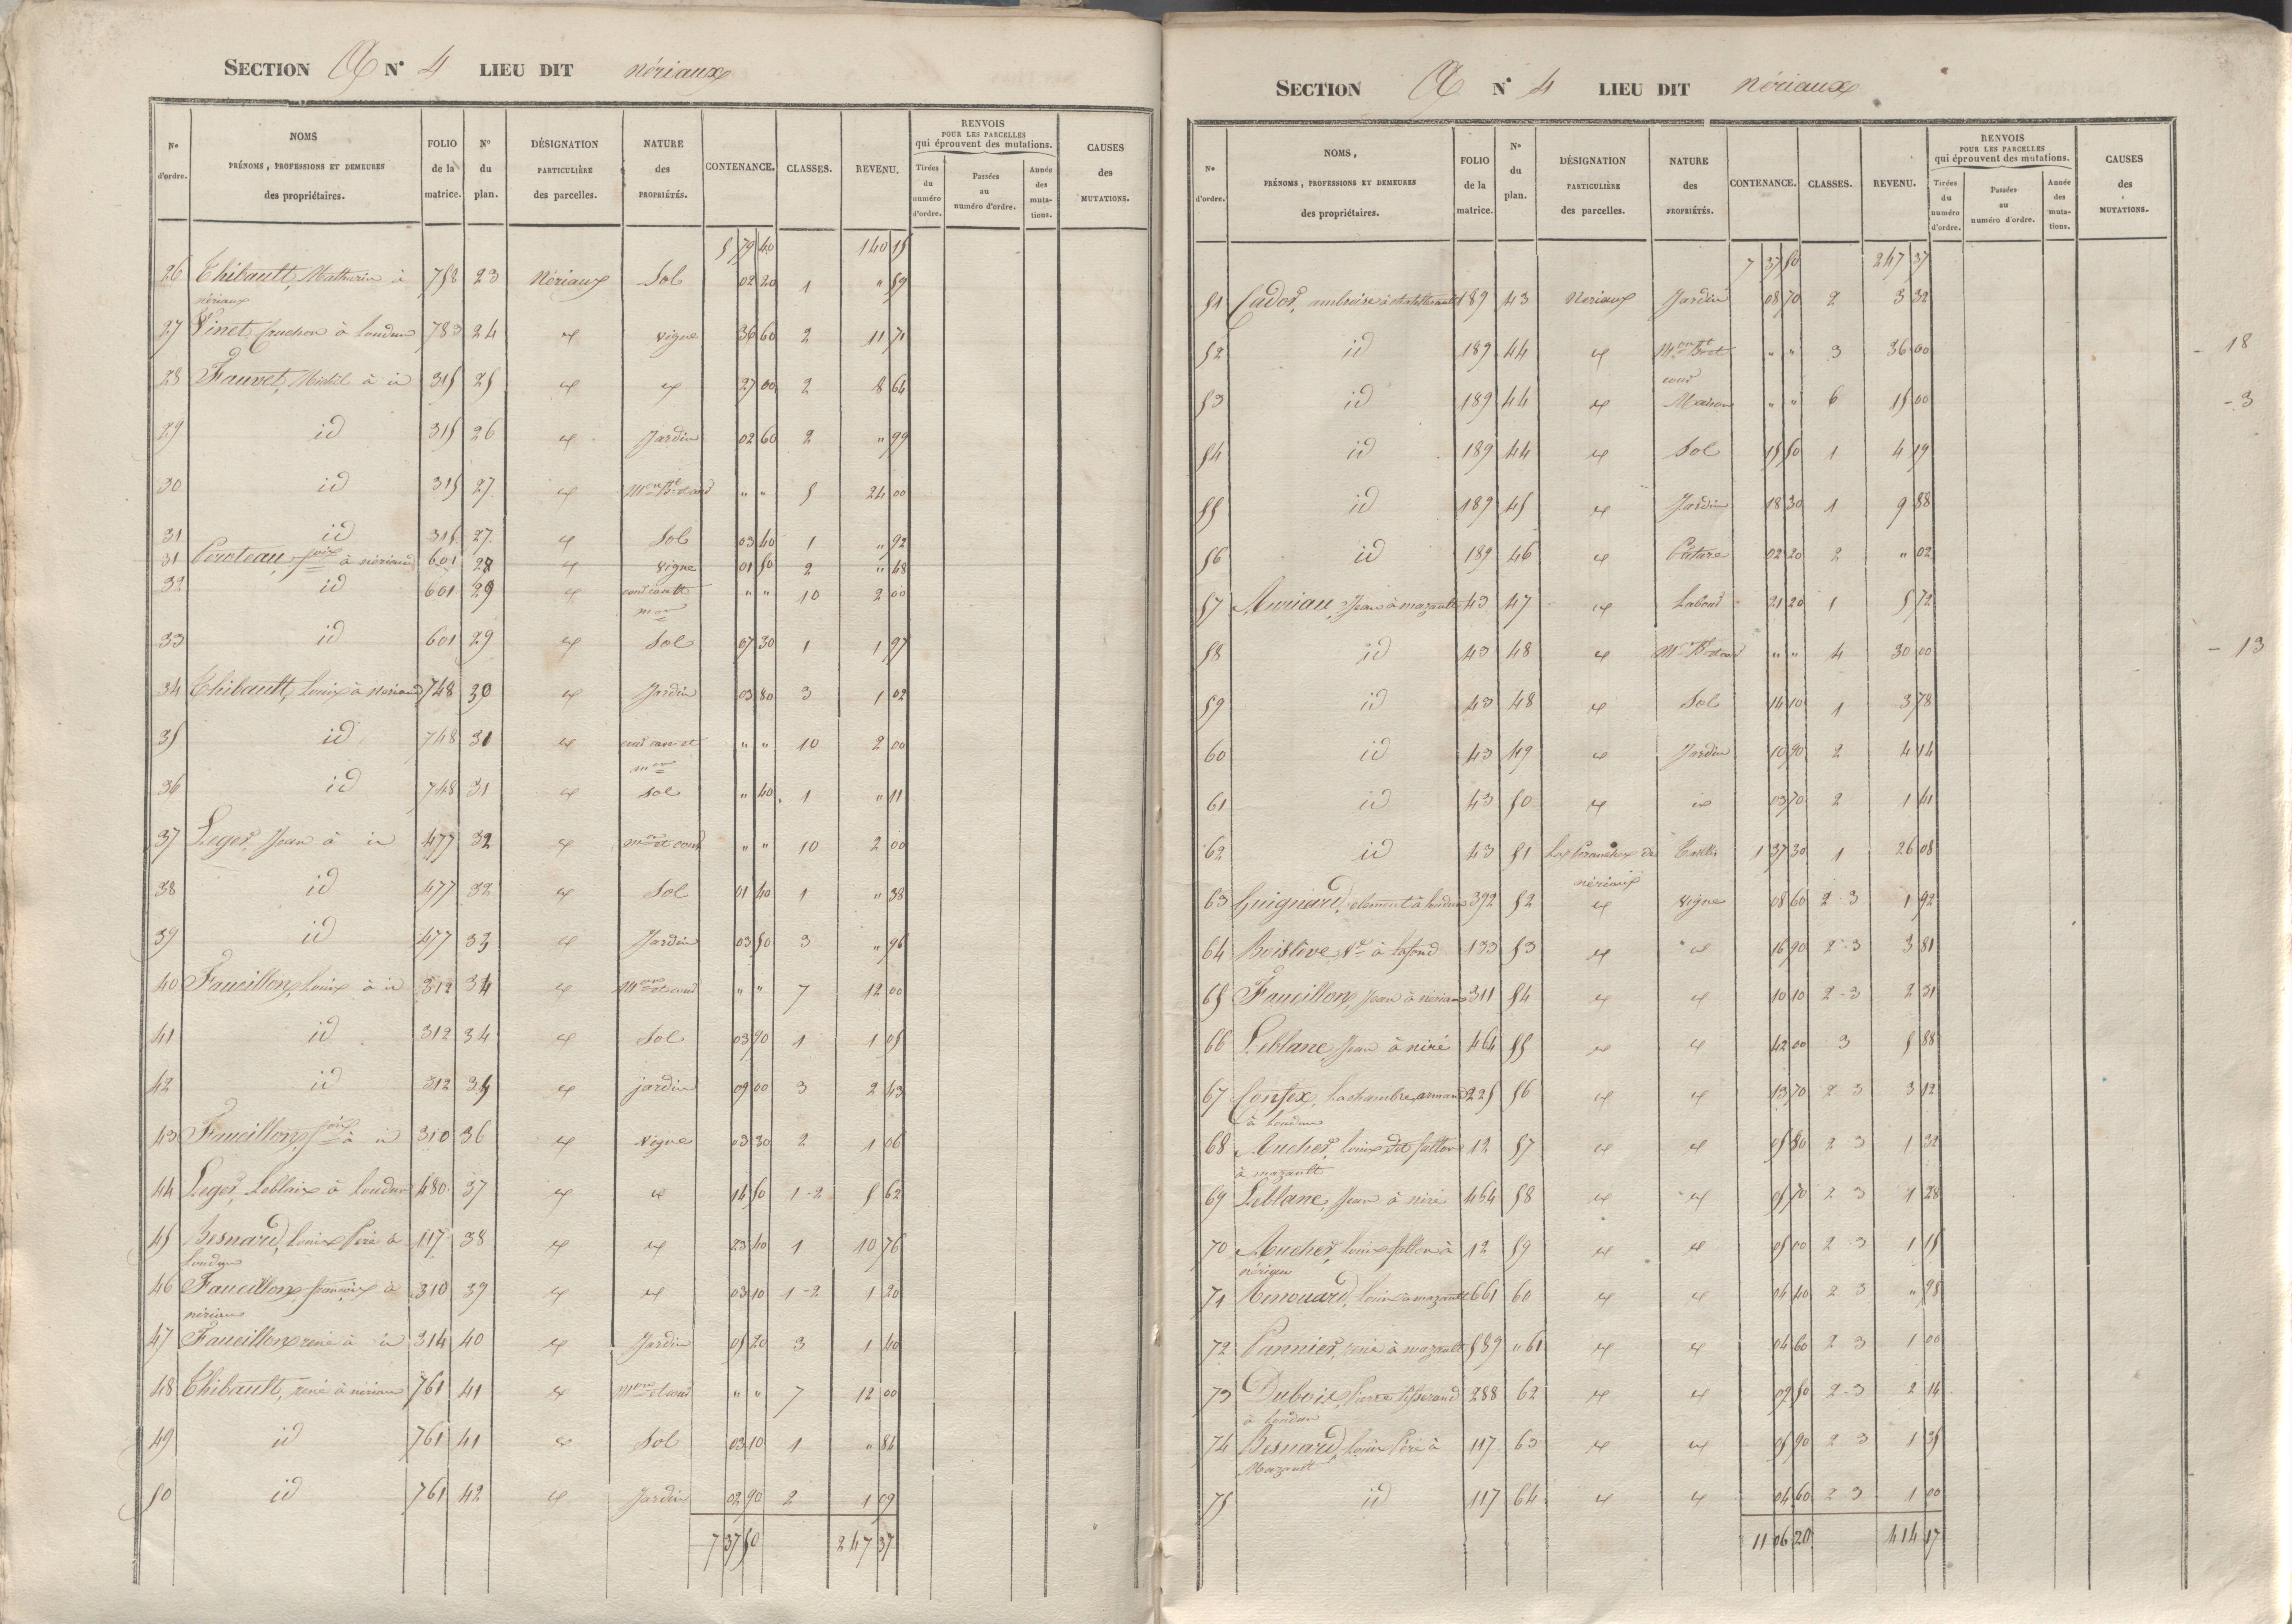 SECTION A N° 4 LIEU DIT nériaux
N° d'ordre. NOMS PRÉNOMS, PROFESSIONS ET DEMEURES des propriétaires. FOLIO de la matrice. N° du plan. DÉSIGNATION PARTICULIÈRE des parcelles. NATURE des PROPRIÉTÉS. CONTENANCE. CLASSES. REVENU. RENVOIS POUR LES PARCELLES qui éprouvent des mutations. Tirées du numéro d'ordre. Passées au numéro d'ordre. Année des mutations. CAUSES des MUTATIONS.
5 79 40 140 15
26 Thibault, Mathurin à 758 23 Nériaux Sol 02 20 1 " 59
nériaux
27 Pinet Cruchon à loudun 783 24 id vigne 36 60 2 11 71
28 Fauvet, Michel à id 315 25 id id 27 00 2 8 64
29 id 315 26 id Jardin 02 60 2 " 99
30 id 315 27 id " " 5 24 00
31 id 315 27 id Sol 03 40 1 " 92
31 Peroteau, foix à nériaux 601 28 id vigne 01 50 2 " 48
32 id 601 29 id cour cave et " " 10 2 00
mon
33 id 601 29 id Sol 07 30 1 1 97
34 Thibault, louis à neriaux 748 30 id Jardin 03 80 3 1 02
35 id 748 31 id cour cave et " " 10 2 00
mon
36 id 748 31 id sol " 40 1 " 11
37 Leger, Jean à id 477 32 id mon et cour " " 10 2 00
38 id 477 32 id Sol 01 40 1 " 38
39 id 477 33 id Jardin 03 50 3 " 96
40 Faucillon, louis à id 312 34 id Mon et cour " " 7 12 00
41 id 312 34 id Sol 03 90 1 1 05
42 id 312 35 id jardin 09 00 3 2 43
43 Faucillon, foix à id 310 36 id vigne 03 30 2 1 06
44 Leger, Leblaix à loudun 480 37 id id 14 50 1-2 5 62
45 Besnard, louis Père à 117 38 id id 23 40 1 10 76
loudun
46 Faucillon, françois à 310 39 id id 03 10 1-2 1 20
nériau
47 Faucillon, rené à id 314 40 id Jardin 05 20 3 1 40
48 Thibault, rené à nériau 761 41 id mon et cour " " 7 12 00
49 id 761 41 id Sol 03 10 1 " 84
50 id 761 42 id Jardin 02 90 2 1 09
7 37 50 247 37
SECTION A N° 4 LIEU DIT nériaux
N° d'ordre. NOMS, PRÉNOMS, PROFESSIONS ET DEMEURES des propriétaires. FOLIO de la matrice. N° du plan. DÉSIGNATION PARTICULIÈRE des parcelles. NATURE des PROPRIÉTÉS. CONTENANCE. CLASSES. REVENU. RENVOIS POUR LES PARCELLES qui éprouvent des mutations. Tirées du numéro d'ordre. Passées au numéro d'ordre. Année des mutations. CAUSES des MUTATIONS.
7 37 50 247 37
51 Cador, ambroise à chatellerault 189 43 Neriaux Jardin 08 70 2 3 32
52 id 189 44 id " " 3 36 00 - 18
cour
53 id 189 44 id Maison " " 6 15 00 - 3
54 id 189 44 id Sol 15 50 1 4 19
55 id 189 45 id Jardin 18 30 1 9 88
56 id 189 46 id Pature 02 20 2 " 02
57 Auriau, Jean à mazault 43 47 id Labour 21 20 1 5 72
58 id 43 48 id " " 4 30 00 - 13
59 id 43 48 id Sol 14 10 1 3 78
60 id 43 49 id Jardin 10 90 2 4 14
61 id 43 50 id id 03 70 2 1 41
62 id 43 51 Les Branches de 1 37 30 1 26 08
nériaux
63 Guignard, clement à loudun 392 52 id vigne 08 60 2-3 1 92
64 Boislève, Ve à lafond 133 53 id id 16 90 2-3 3 81
65 Faucillon, Jean à nériau 311 54 id id 10 10 2-3 2 31
66 Leblanc, Jean à niré 464 55 id id 42 00 3 5 88
67 Confex, Lachambre, armand 225 56 id id 13 70 2 3 3 12
à loudun
68 Aucher, louis dit fatton 12 57 id id 05 80 2 3 1 32
à mazault
69 Leblanc, Jean à niré 464 58 id id 05 70 2 3 1 28
70 Aucher, louis fatton à 12 59 id id 05 00 2 3 1 15
71 Renouard, louis à mazault 661 60 id id 04 40 2 3 " 98
72 Pannier, rené à mazault 589 " 61 id id 04 60 2 3 1 00
73 Dubois, Pierre tisserand 288 62 id id 09 50 2-3 2 14
à loudun
74 Besnard, louis Père à 117 63 id id 05 90 2 3 1 35
Mazault
75 id 117 64 id id 04 60 2 3 1 00
11 06 20 414 17